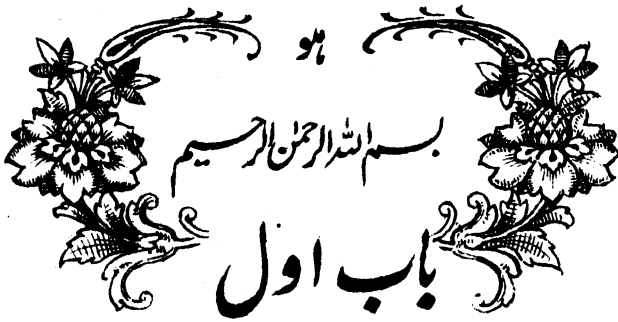 ہو
بسم اللہ الرحمٰن الرحیم
باب اول